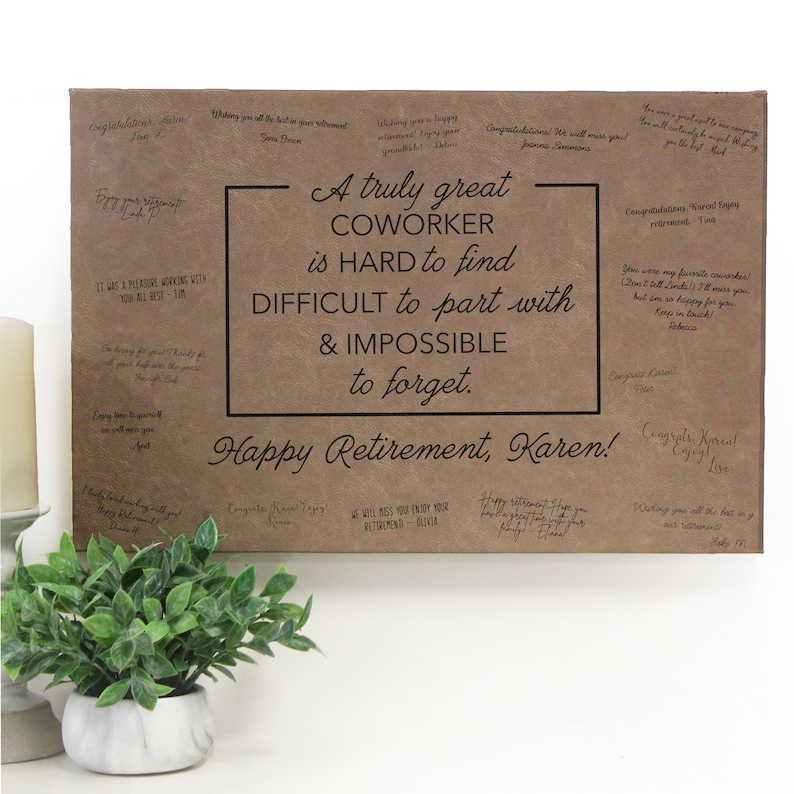 Congratulations, Karen
Tom T.
Wishing you all the best in your retirement
Sara Brown
Wishing you a happy
retirement! Enjoy your
grandkids! - Debra
Congratulations! We will miss you!
Joanna Simmons
You were a great asset to our company.
You will certainly be missed. Wishing
you the best - Mark
Enjoy your retirement!
Linda P
IT WAS A PLEASURE WORKING WITH
YOU! ALL BEST - TIM
So happy for you! Thanks for
all your help over the years
Jennifer
Enjoy time to yourself
we will miss you
April
I truly loved working with you!
Happy Retirement!
Diane H
A truly great
COWORKER
is HARD to find
DIFFICULT to part with
& IMPOSSIBLE
to forget.
Happy Retirement, Karen!
Congratulations, Karen! Enjoy
retirement. - Tina
You were my favorite coworker!
(Don't tell Linda!) I'll miss you,
but am so happy for you.
Keep in touch!
Rebecca
Congrats Karen!
Peter
Congrats, Karen!
Enjoy!
Lisa
Congrats, Karen! Enjoy!
WE WILL MISS YOU! ENJOY YOUR
RETIREMENT! -- OLIVIA
Happy retirement! Hope you
have a great time with your
family! - Eliana
Wishing you all the best in y
our retirement!
Jake M